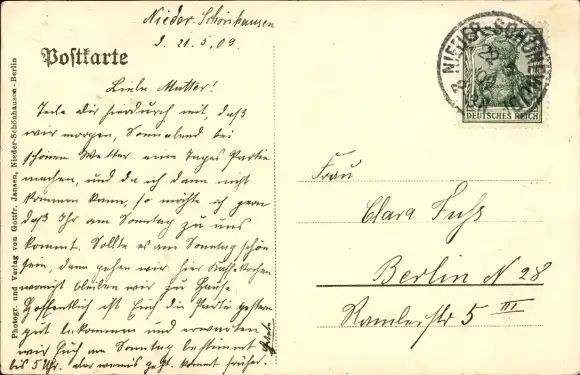 Nieder-Schönhausen
d. 21.5.09.
Postkarte
Liebe Mutter!
Teile Dir hierdurch mit, daß
wir morgen, Sonnabend bei
schönem Wetter eine Tages Partie
machen, und da ich dann nicht
kommen kann, so möchte ich gern
daß Ihr am Sonntag zu uns
kommt. Sollte es am Sonntag schön
sein, dann gehen wir hier Kaffeekochen
bleiben wir zu Hause.
Hoffentlich ist Euch die Partie gestern
gut bekommen und erwarten
wir Euch am Sonntag bestimmt
bis 5 Uhr. aber wenn's geht kommt früher.
Photogr. und Verlag von Gottfr. Jansen, Nieder-Schönhausen-Berlin
NIEDER-SCHÖNHAUSEN
DEUTSCHES REICH
Frau
Clara Fuß
Berlin N 28
Ramlerstr 5 III